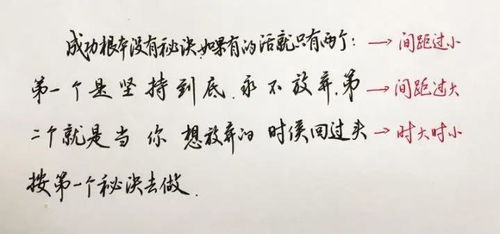 成功根本没有秘诀,如果有的话就只有两个: → 间距过小
第一个是坚持到底.永不放弃.第 → 间距过大
二个就是当 你 想放弃的 时侯回过头 → 时大时小
按第一个秘诀去做.